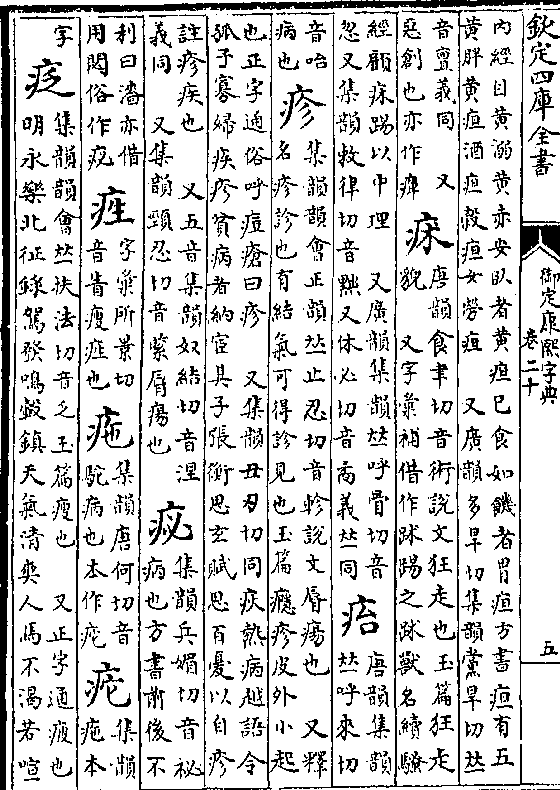 欽定四庫全書
御定康熙字典
卷二十
五
內經目黃溺黃赤安臥者黃疸已食如饑者胃疸方書疸有五
黃胖黃疸酒疸穀疸女勞疸 又廣韻多旱切集韻黨旱切𠀤
音亶義同 又
惡創也亦作癉
疩 唐韻食聿切音術說文狂走也玉篇狂走
貌 又字彙補借作訹踢之訹獸名續騷
經顧疩踢以中理 又廣韻集韻𠀤呼骨切音
忽又集韻敕律切音黜又休必切音矞義𠀤同
㾂 唐韻集韻
𠀤呼來切
音咍
病也
疹 集韻韻會正韻𠀤止忍切音軫說文脣瘍也 又釋
名疹診也有結氣可得診見也玉篇癮疹皮外小起
也正字通俗呼痘瘡曰疹 又集韻丑刃切同疢熱病越語令
孤子寡婦疾疹貧病者納宦其子張衡思玄賦思百憂以自疹
註疹疾也 又五音集韻奴結切音涅
義同 又集韻頸忍切音緊脣瘍也
䟆 集韻兵媚切音祕
病也方書前後不
利曰䟆亦借
用閟俗作疺
痓 字彙所景切
音眚瘦痓也
㾃 集韻唐何切音
駝病也本作疕
疕 集韻
㾃本
字
疺 集韻韻會𠀤扶法切音乏玉篇瘦也 又正字通疲也
明永樂北征錄駕發鳴穀鎮天氣清爽人馬不渴若喧